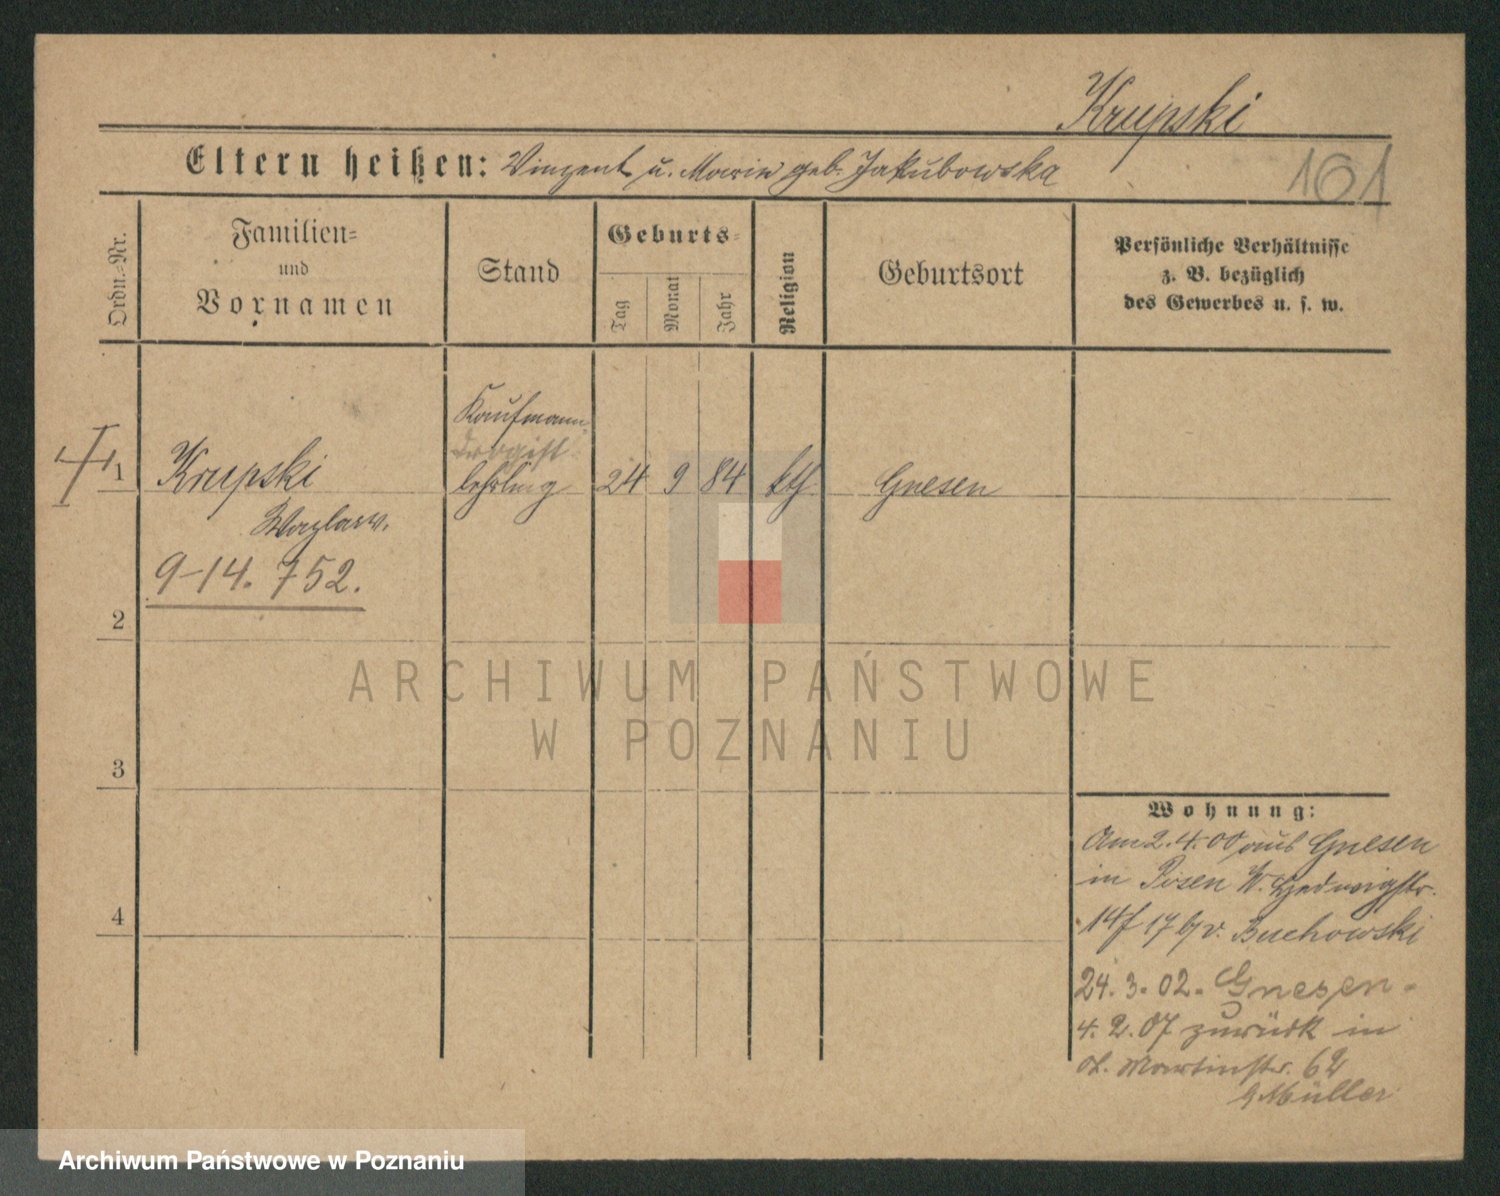 Krupski
161
Eltern heißen: Vinzent u. Marie geb. Jakubowska
Ordn.=Nr.
Familien=
und
Vornamen
Stand
Geburts=
Tag
Monat
Jahr
Religion
Geburtsort
Persönliche Verhältnisse
z. B. bezüglich
des Gewerbes u. s. w.
Kaufmann=
Drogist
1 Krupski lehrling 24 9 84 kth. Gnesen
Wazlaw.
9-14. 752.
2
3
4
ARCHIWUM PAŃSTWOWE
W POZNANIU
Wohnung:
Am 2.4.00 aus Gnesen
in Posen W. Hedwigstr.
14 17 b/v. Buchowski
24.3.02. Gnesen
4.2.07 zurück in
St. Martinstr. 62
Müller
Archiwum Państwowe w Poznaniu